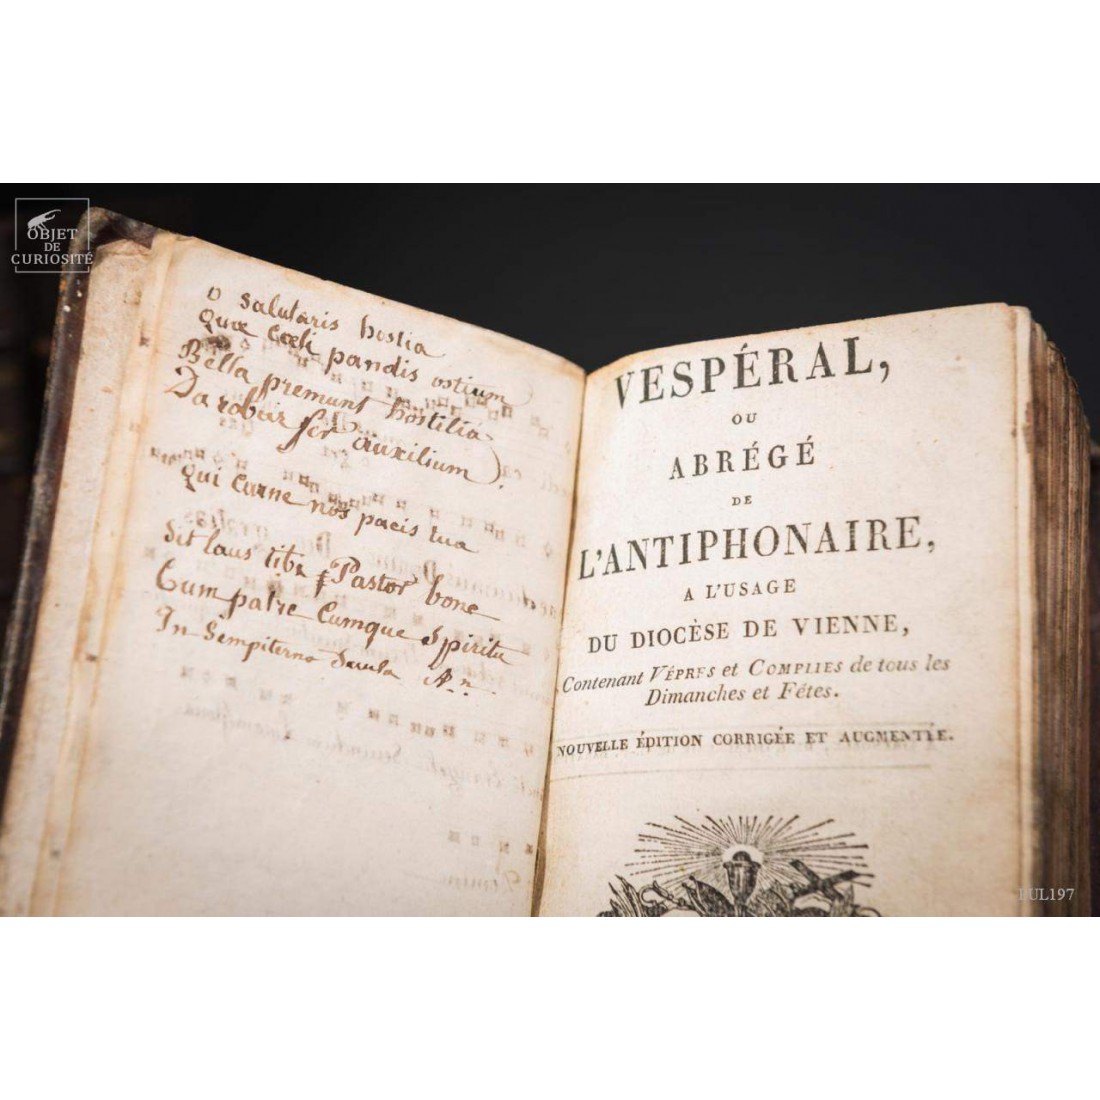 OBJET
DE
CURIOSITÉ
O salutaris hostia
Quæ Cœli pandis ostium
Bella premunt hostilia
Da robur fer auxilium.
Qui Carne nos pacis tua
Sit laus tibi Pastor bone
Cum patre Cumque Spiritu
In Sempiterna Sæcula An.
VESPÉRAL,
OU
ABRÉGÉ
DE
L'ANTIPHONAIRE,
A L'USAGE
DU DIOCÈSE DE VIENNE,
Contenant VÊPRES et COMPLIES de tous les
Dimanches et Fêtes.
NOUVELLE ÉDITION CORRIGÉE ET AUGMENTÉE.
BUL197